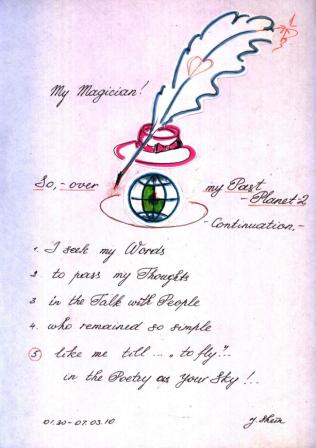 My Magician!
So,- over my Past
- Planet 2
- Continuation,-
1. I seek my Words
2 to pass my Thoughts
3 in the Talk with People
4. who remained so simple
5 like me till ... „ to fly"...
in the Poetry as Your Sky !..